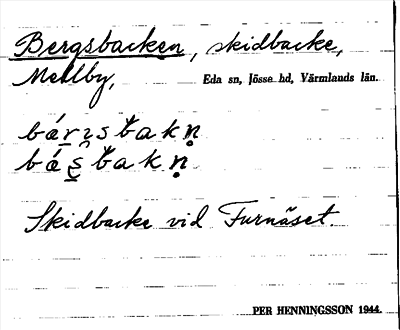 Bergsbacken, skidbacke,
Mellby, Eda sn, Jösse hd, Värmlands län.
Skidbacke vid Furnäset.
PER HENNINGSSON 1944.